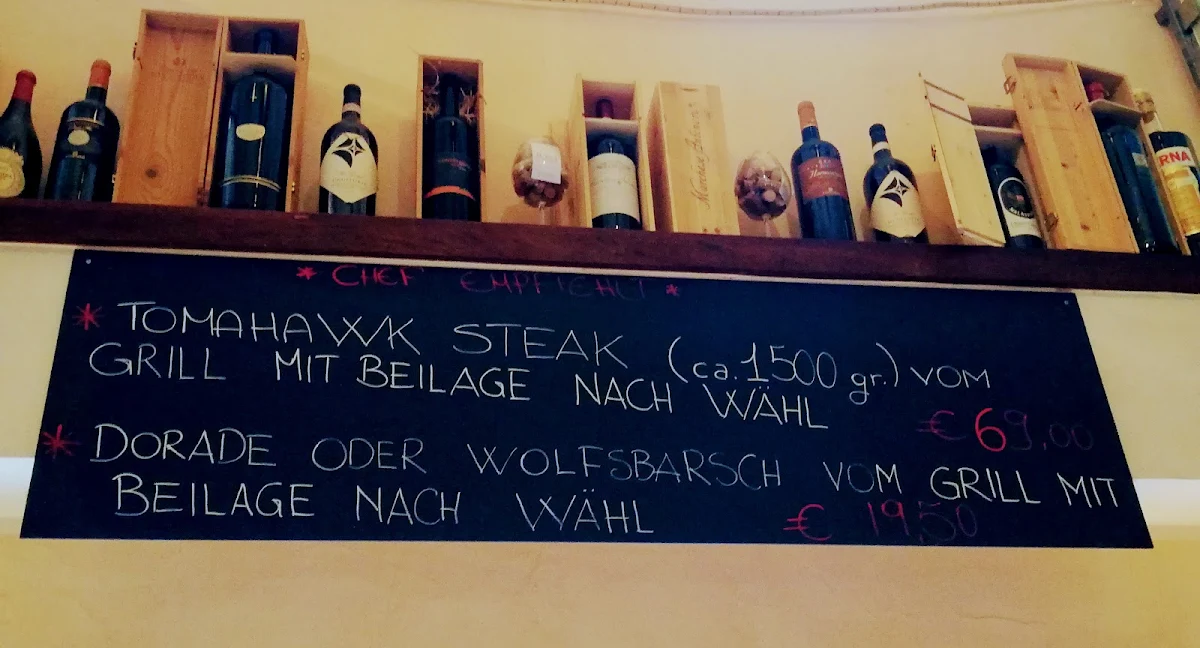 * CHEF EMPFIEHLT *
* TOMAHAWK STEAK (ca. 1500 gr.) VOM
GRILL MIT BEILAGE NACH WÄHL
€ 69,00
* DORADE ODER WOLFSBARSCH VOM GRILL MIT
BEILAGE NACH WÄHL € 19,50